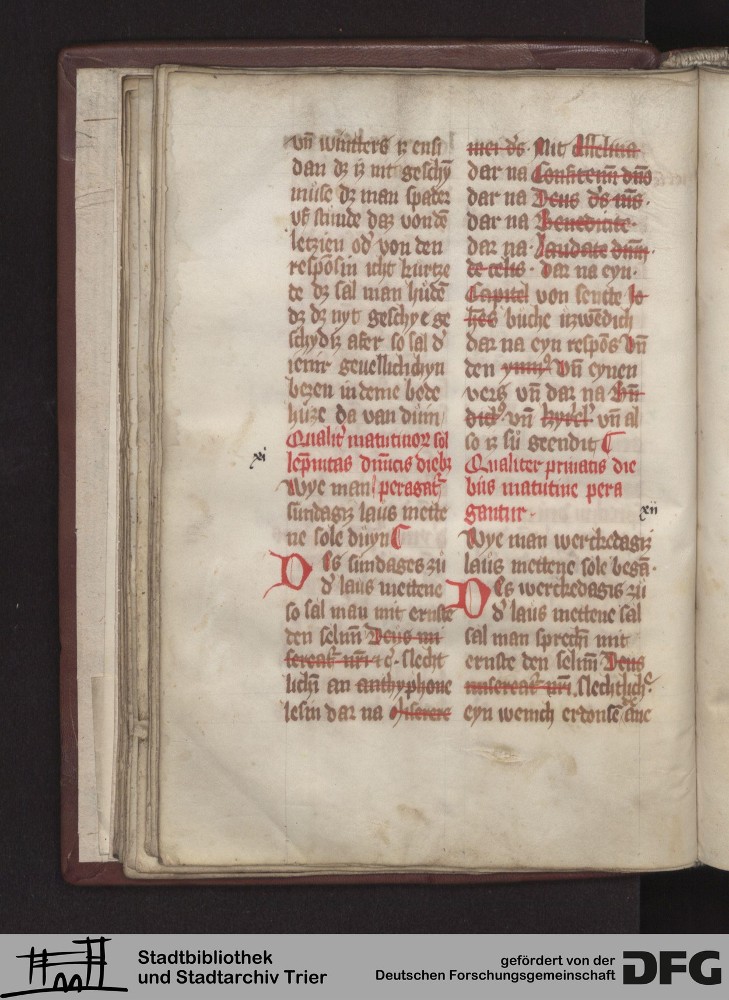 vn̄ wintters iz ensi
dan dz iz nit geschÿ
muse dz man spater
vf stunde daz von dē
letzien od' von den
respōsin icht kurtze
te dz sal man hudē
dz dz nyt geschye ge
schyd iz afer so sal d'
iemir gevellichchyn
bezen in deme bede
huze da van dūm
Qualit' matutinor sol
xi
lēpnitas dnīcis diebz
Wye man peragat'
sundagiz laus mette
ne sole duyn
Des sundages zu
d' laus mettene
so sal man mit ernste
den selmī Deus mi
sereat' nr̄i ic̄. slecht
lichī an anthyphone
lesin dar na Miserere
mei d's. Mit Allelúia
dar na Confitemī dn̄o
dar na Deus d's m̄s.
dar na Benedicite.
dar na. Laudate dnm̄.
de celis. dar na eyn.
Capitel von sencte Io
hēs buche uzwēdich
dar na eyn respōs vn̄
den ymn9 vn̄ eynen
vers vn̄ dar na Bn̄
dict9. vn̄ kyriel' vn̄ al
so iz sū geendit
Qualiter priuatis die
bus matutine pera
gantur.
xii
Wye man werckedagiz
laus mettene sole begā.
Des werckedagis zu
d' laus mettene sal
sal man sprechī mit
ernste den selmī Deus
misereat' nr̄i slechtlich
eyn wenich
Stadtbibliothek
und Stadtarchiv Trier
gefördert von der
Deutschen Forschungsgemeinschaft
DFG